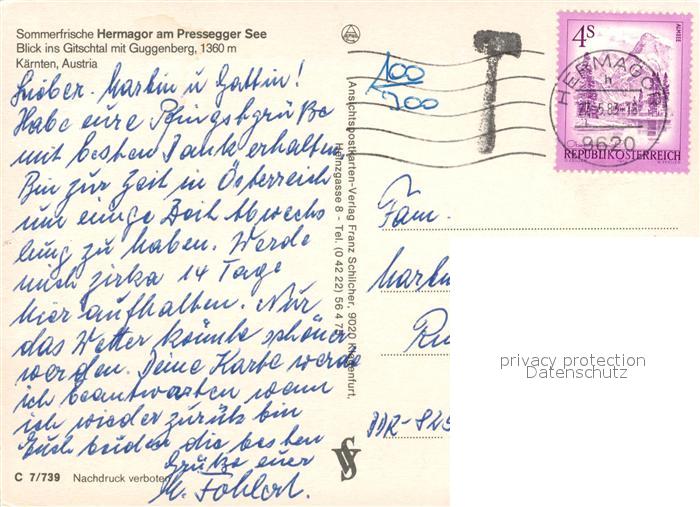 Sommerfrische Hermagor am Pressegger See
Blick ins Gitschtal mit Guggenberg, 1360 m
Kärnten, Austria
Lieber Martin u Gattin!
Habe eure Pfingstgrüße
mit besten Dank erhalten
Bin zur Zeit in Österreich
um einige Zeit Abwechs
lung zu haben. Werde
mich zirka 14 Tage
hier aufhalten. Nur
das Wetter könnte schöner
werden. Deine Karte werde
ich beantworten wenn
ich wieder zurük bin
Euch beiden die besten
Grüße euer
M.
C 7/739 Nachdruck verboten
Ansichtspostkarten-Verlag Franz Schilcher, 9020 Klagenfurt,
Heinzgasse 8 - Tel. (0 42 22) 56 4 75
100
200
4S
ALMSEE
REPUBLIK ÖSTERREICH
HERMAGOR
9620
Fam.
Martin
Ru
DDR-825
privacy protection
Datenschutz